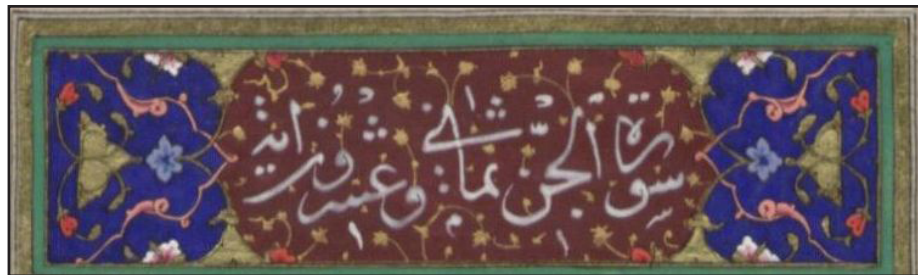 سورة الجن ثماني وعشرون اية